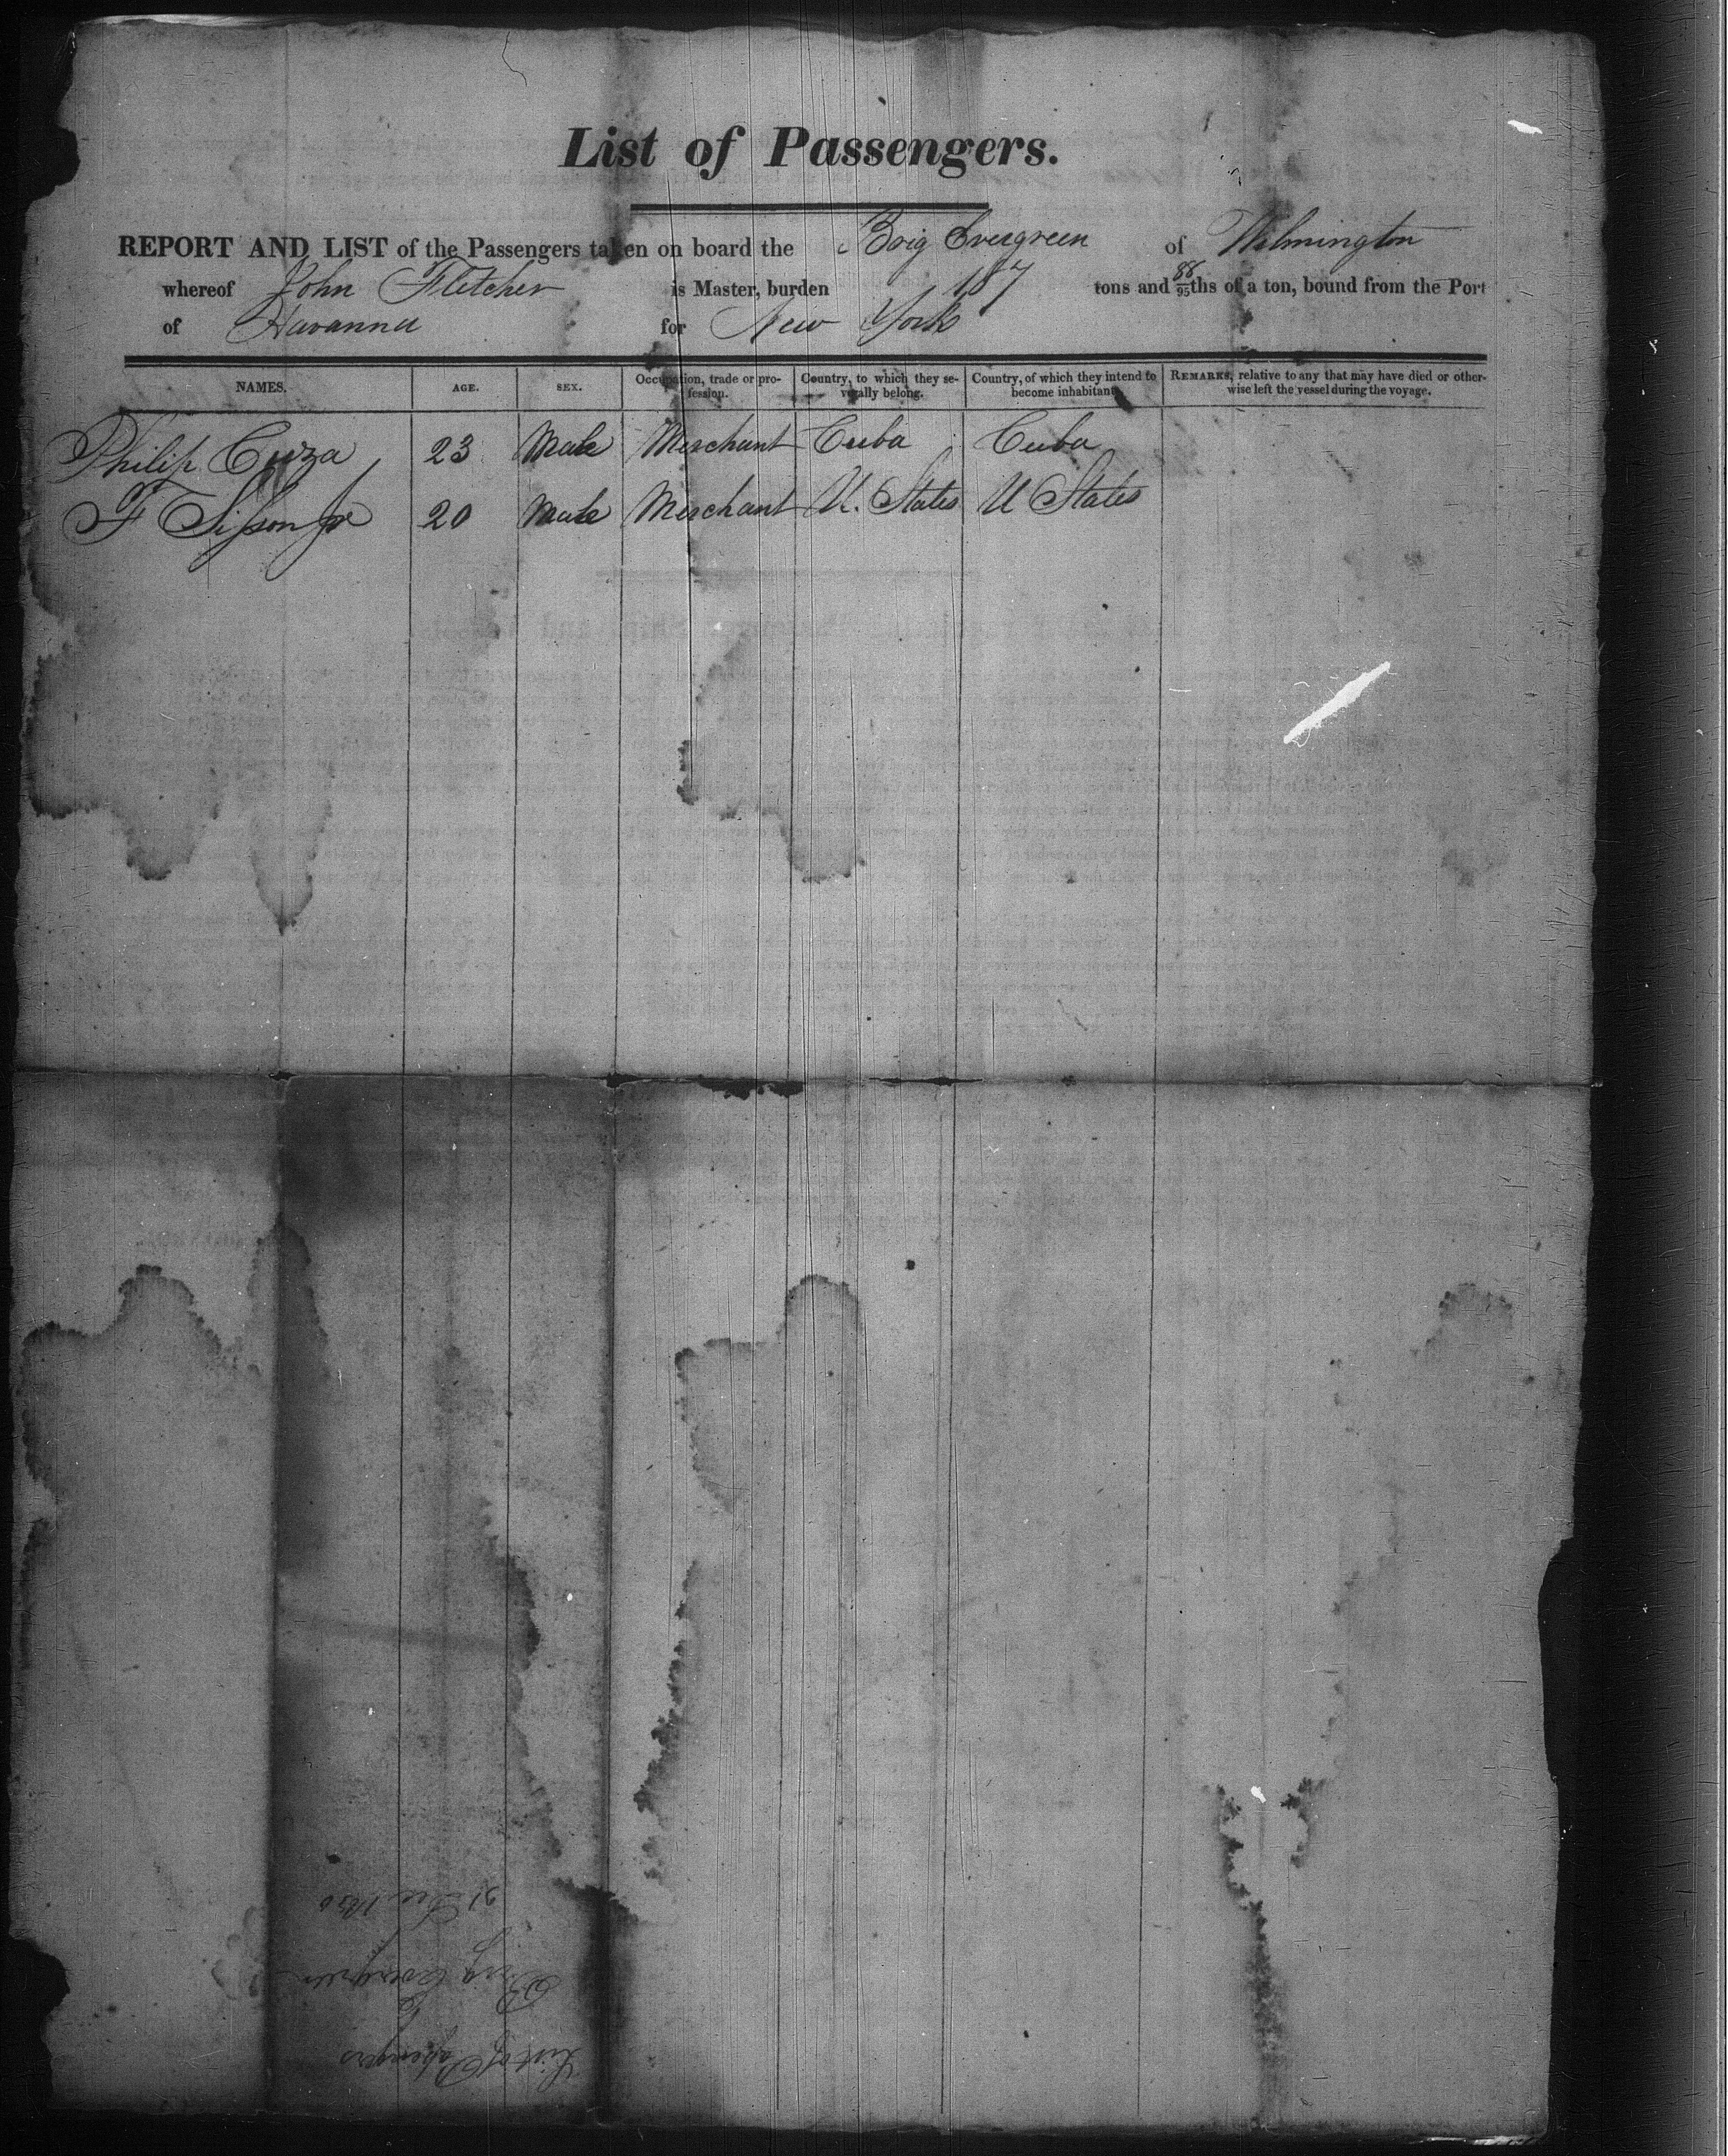 List of Passengers.
REPORT AND LIST of the Passengers taken on board the Brig Evergreen of Wilmington
whereof John Fletcher is Master, burden 187 tons and 88/95ths of a ton, bound from the Port
of Havanna for New York
NAMES. AGE. SEX. Occupation, trade or pro-fession. Country, to which they se-verally belong. Country, of which they intend to become inhabitants. REMARKS, relative to any that may have died or other-wise left the vessel during the voyage.
Philip 23 Male Merchant Cuba Cuba
F Sisson Jr 20 Male Merchant U. States U States
List of Passengers
Brig Evergreen